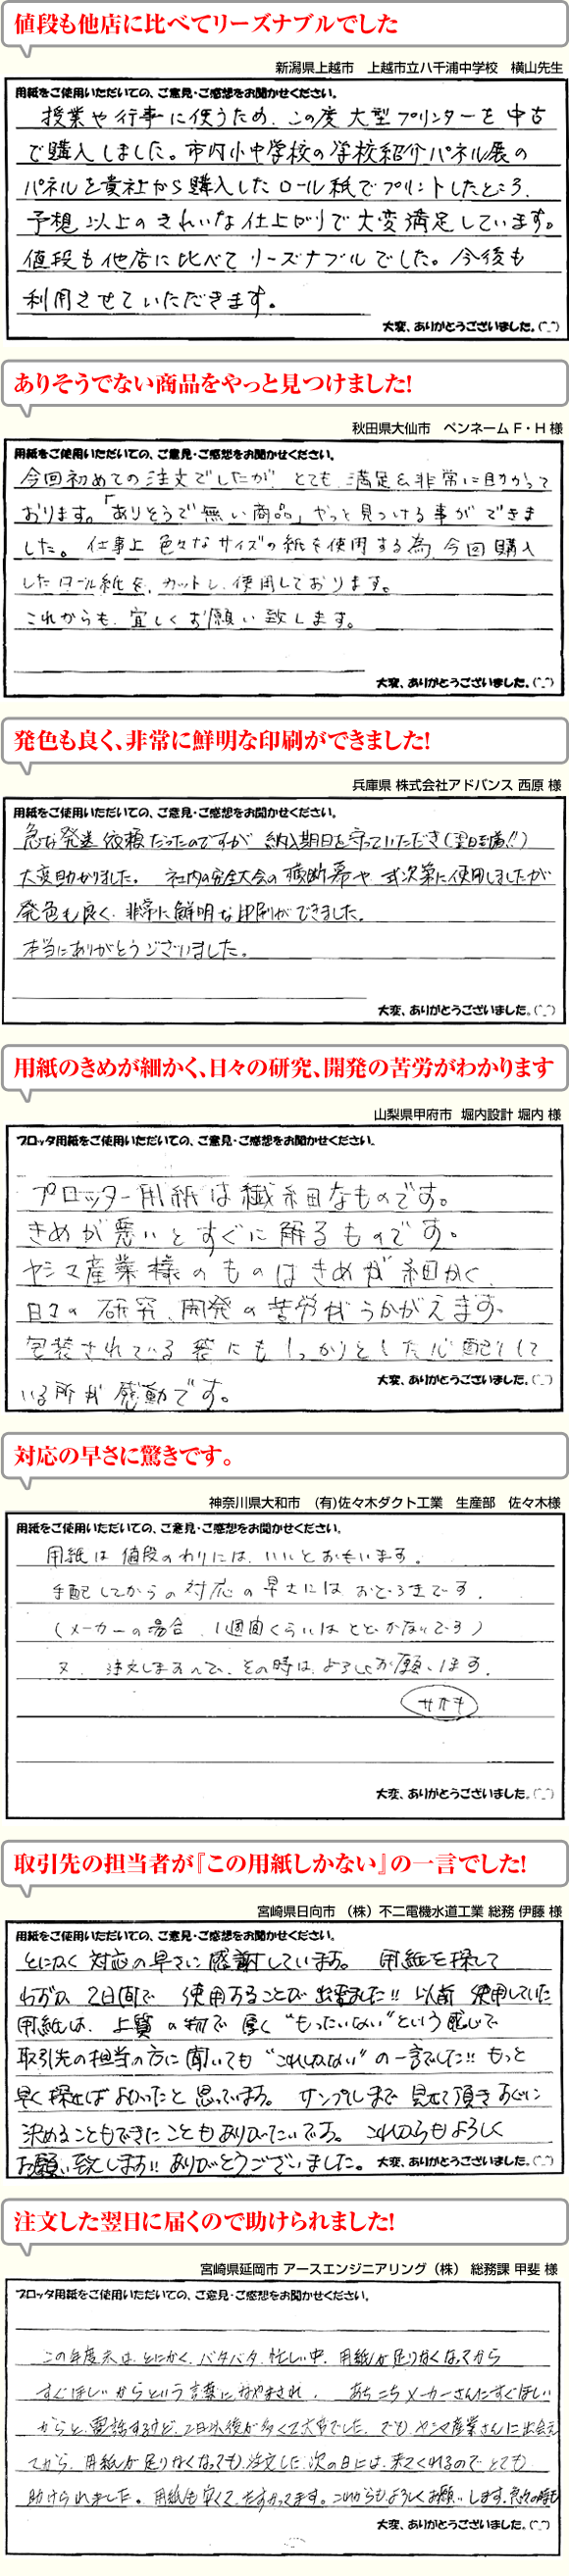 値段も他店に比べてリーズナブルでした
新潟県上越市　上越市立八千浦中学校　横山先生
用紙をご使用いただいての、ご意見・ご感想をお聞かせください。
授業や行事に使うため、この度 大型プリンターを中古
で購入しました。市内小中学校の学校紹介パネル展の
パネルを貴社から購入したロール紙でプリントしたところ、
予想以上のきれいな仕上がりで大変満足しています。
値段も他店に比べてリーズナブルでした。今後も
利用させていただきます。
大変、ありがとうございました。(^_^)
ありそうでない商品をやっと見つけました!
秋田県大仙市　ペンネームF・H様
用紙をご使用いただいての、ご意見・ご感想をお聞かせください。
今回初めての注文でしたが とても 満足&非常に助かって
おります。「ありそうで無い商品」やっと見つける事ができま
した。仕事上 色々なサイズの紙を使用する為、今回購入
したロール紙を、カットし、使用しております。
これからも、宜しくお願い致します。
大変、ありがとうございました。(^_^)
発色も良く、非常に鮮明な印刷ができました!
兵庫県 株式会社アドバンス 西原 様
用紙をご使用いただいての、ご意見・ご感想をお聞かせください。
急な発送依頼だったのですが 納入期日を守っていただき(翌日到着!!)
大変助かりました。 社内の安全大会の横断幕や式次第に使用しましたが
発色も良く、非常に鮮明な印刷ができました。
本当にありがとうございました。
大変、ありがとうございました。(^_^)
用紙のきめが細かく、日々の研究、開発の苦労がわかります
山梨県甲府市 堀内設計 堀内 様
プロッタ用紙をご使用いただいての、ご意見・ご感想をお聞かせください。
プロッター用紙は繊細なものです。
きめが悪いとすぐに解るものです。
ヤシマ産業様のものはきめが細かく、
日々の研究、開発の苦労がうかがえます。
包装されている袋にもしっかりとした心配りして
いる所が感動です。
大変、ありがとうございました。(^_^)
対応の早さに驚きです。
神奈川県大和市　(有)佐々木ダクト工業　生産部　佐々木様
用紙をご使用いただいての、ご意見・ご感想をお聞かせください。
用紙は値段のわりには、いいとおもいます。
手配してからの対応の早さにはおどろきです。
(メーカーの場合、1週間くらいはとどかないです)
又、注文しますので、その時は、よろしくお願いします。
ササキ
大変、ありがとうございました。(^_^)
取引先の担当者が『この用紙しかない』の一言でした!
宮崎県日向市 （株）不二電機水道工業 総務 伊藤 様
用紙をご使用いただいての、ご意見・ご感想をお聞かせください。
とにかく対応の早さに感謝しています。 用紙を探して
わずか2日間で 使用することが出来ました!! 以前使用していた
用紙は、上質の物で厚く"もったいない"という感じで
取引先の担当の方に聞いても"これしかない"の一言でした!! もっと
早く探せばよかったと思っています。 サンプルまで見せて頂きすぐに
決めることもできたこともありがたいです。 これからもよろしく
お願い致します!! ありがとうございました。
大変、ありがとうございました。(^_^)
注文した翌日に届くので助けられました!
宮崎県延岡市 アースエンジニアリング（株） 総務課 甲斐 様
プロッタ用紙をご使用いただいての、ご意見・ご感想をお聞かせください。
この年度末は、とにかく、バタバタ、忙しい中、用紙が足りなくなってから
すぐほしいからという言葉になやまされ、 あちこちメーカーさんにすぐほしい
からと、電話するけど、2日以後が多くて大変でした。でも、ヤシマ産業さんに出会え
てから、用紙が足りなくなっても、注文した、次の日には、来てくれるのでとても
助けられました。用紙も安くて、たすかってます。これからもよろしくお願いします。
大変、ありがとうございました。(^_^)